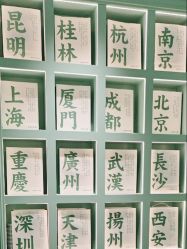 昆明 桂林 杭州 南京
上海 厦門 成都 北京
重慶 廣州 武漢 長沙
深圳 天津 揚州 西安